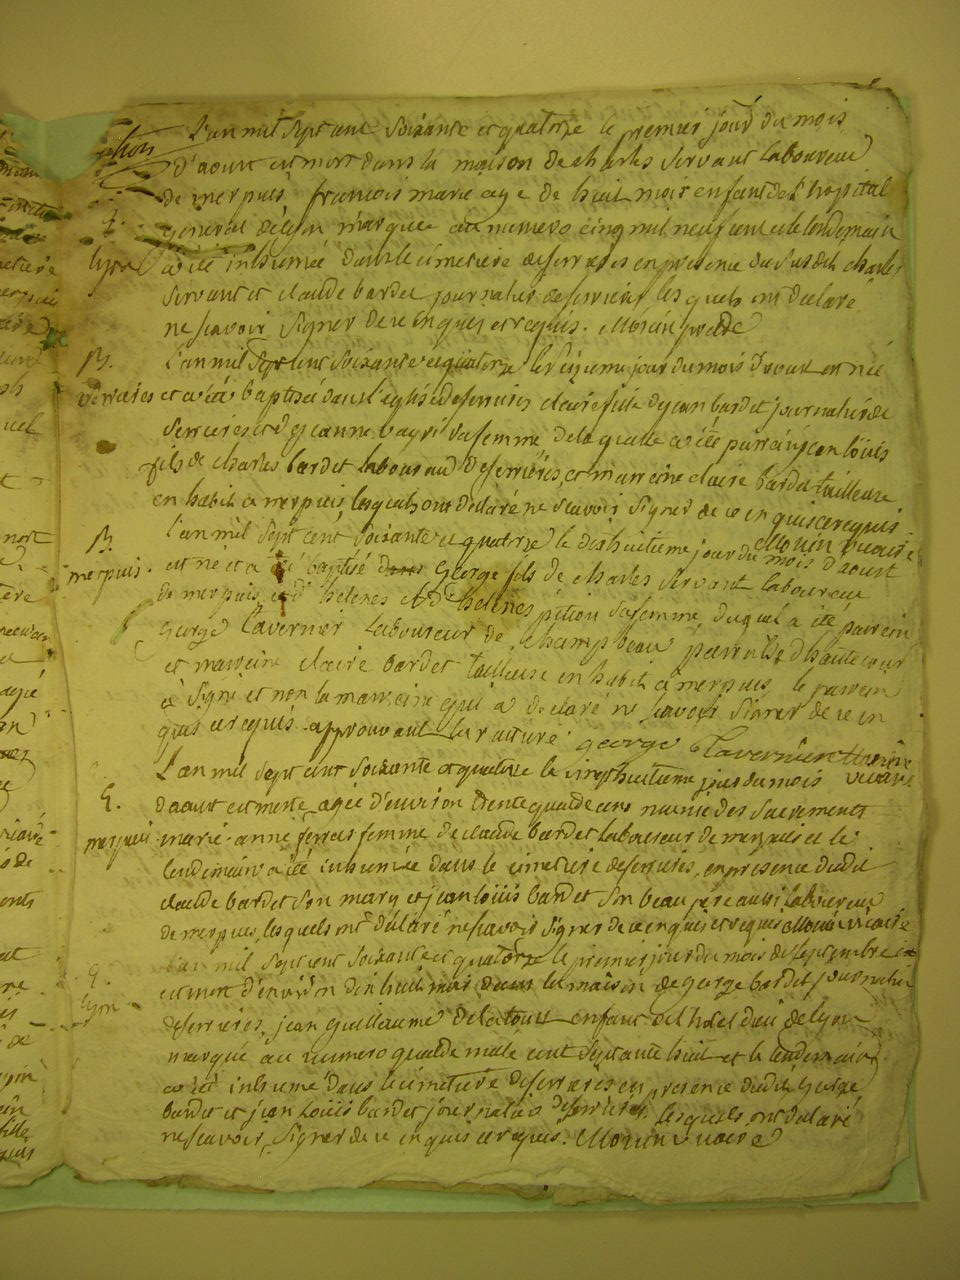 L'an mil sept cent soixante et quatorze le premier jour du mois
d'aoust est mort dans la maison de charles servant laboureur
de merpuis françois marie agé de huit mois enfant de l'hopital
general de lyon marquée au numero cinq mil neuf cent et le lendemain
lyon a été inhumée dans le cimetiere de ferrieres en presence du susdit charles
servant et claude bardet journalier de ferrieres lesquels ont declaré
ne scavoir signer de ce enquis et requis. Morin
B. l'an mil sept cent soixante et quatorze le jour du mois d'aoust est née
ferrieres et a été baptisée dans l'eglise de ferrieres claire fille de jean bardet journalier de
ferrieres et de jeanne sa femme de laquelle a été parrain jean louis
fils de charles bardet laboureur de ferrieres, et marreine claire bardet tailleuse
en habit a merpuis lesquels ont declaré ne scavoir signer de ce enquis et requis
Morin vicaire
B. l'an mil sept cent soixante et quatorze le dixhuitieme jour du mois d'aoust
merpuis. est né et a été baptisé george fils de charles servant laboureur
de merpuis et d'helenes pition sa femme, duquel a été parrein
george tavernier laboureur de champbeau parroisse d'hauterivoir
et marreine claire bardet tailleuse en habit a merpuis, le parrein
a signé et non la marreine qui a declaré ne scavoir signer de ce en
quis et requis approuvant la rature george Tavernier Morin
vicaire
L'an mil sept cent soixante et quatorze le vingthuitieme jour du mois
d'aoust est morte agée d'environ trente quatre ans munie des sacrements
merpuis marie-anne ferras femme de claude bardet laboureur de merpuis et le
lendemain a été inhumée dans le cimetiere de ferrieres, en presence dudit
claude bardet son mary et jean louis bardet son beau pere aussi laboureur
de merpuis, lesquels ont declaré ne scavoir signer de ce enquis et requis Morin vicaire
l'an mil sept cent soixante et quatorze le premier jour du mois de septembre
lyon est mort d'environ dix huit mois dans la maison de george bardet journalier
de ferrieres, jean guillaume delatour enfant de l'hotel dieu de lyon
marqué au numero quatre mille cent septante huit et le lendemain
a été inhumé dans le cimetiere de ferrieres en presence dudit george
bardet et jean louis bardet journalier de ferrieres, lesquels ont declaré
ne scavoir signer de ce enquis et requis. Morin vicaire